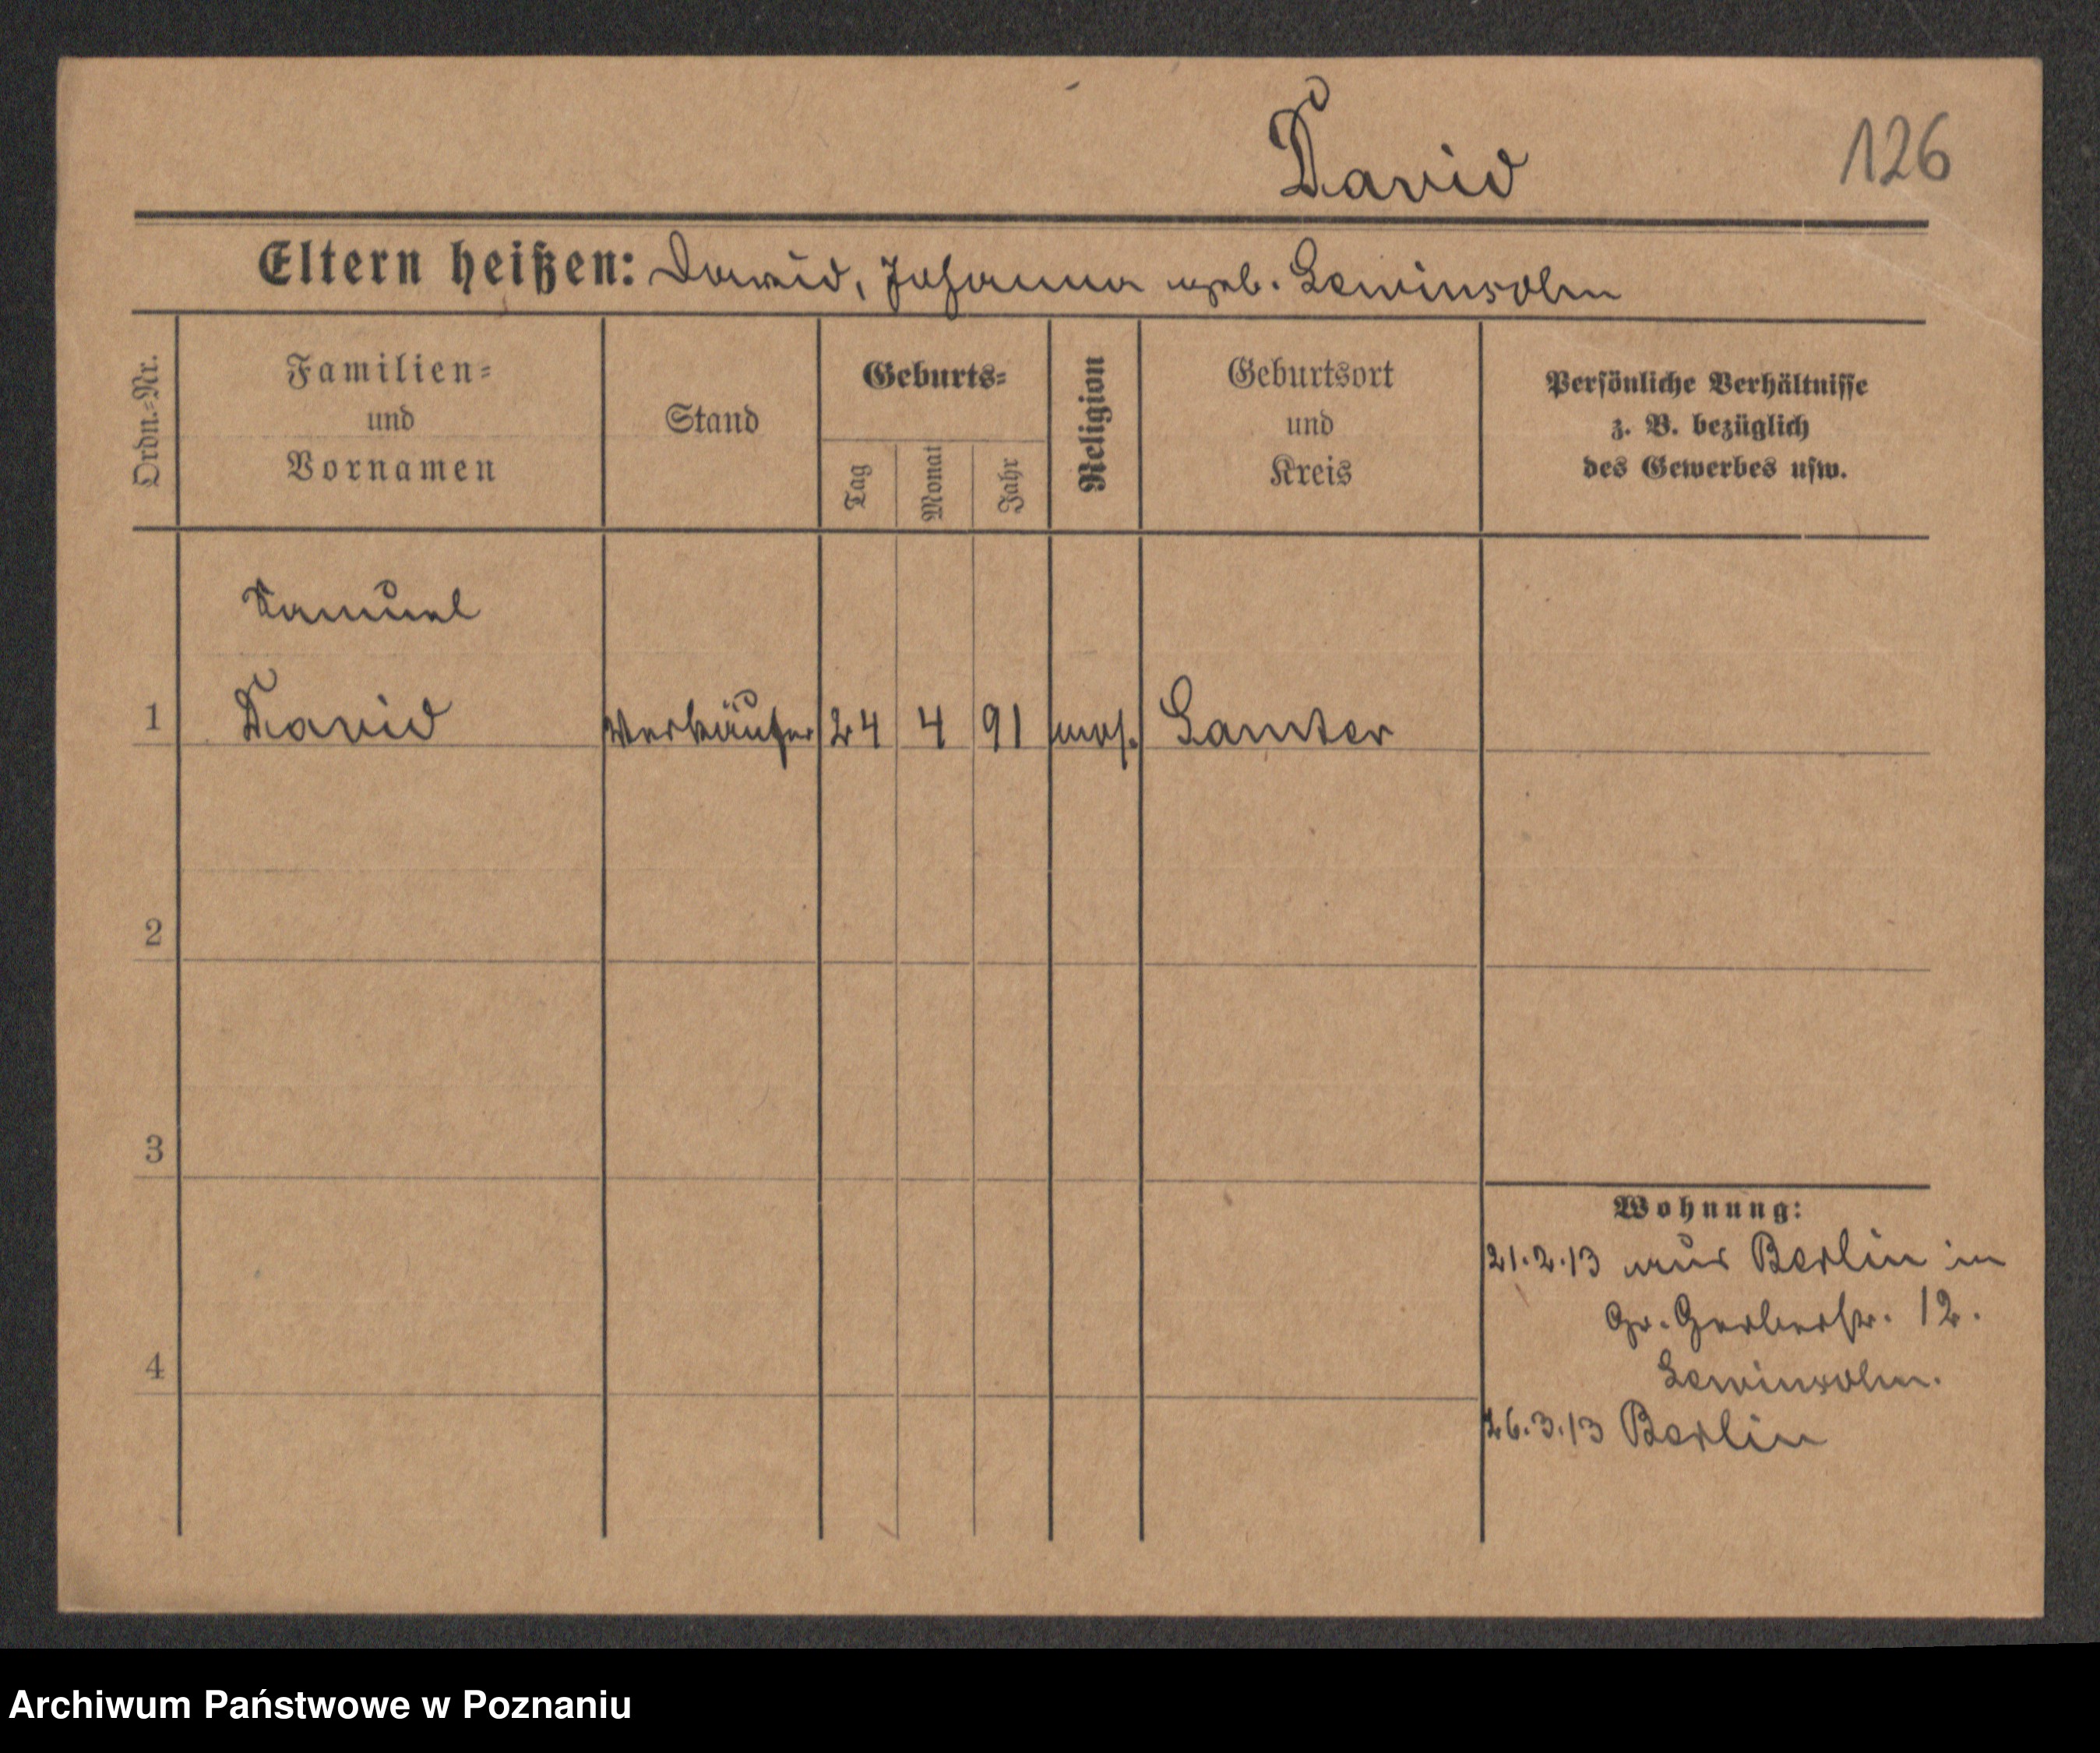 David
126
Eltern heißen: David, Johanna geb. Lewinsohn
Ordn.=Nr.
Familien=
und
Vornamen
Stand
Geburts=
Tag
Monat
Jahr
Religion
Geburtsort
und
Kreis
Persönliche Verhältnisse
z. B. bezüglich
des Gewerbes usw.
Samuel
1 David Verkäufer 24 4 91 mos. Samter
2
3
Wohnung:
21.2.13 aus Berlin in
Gr. Gerberstr. 12.
Lewinsohn.
4
26.3.13 Berlin
Archiwum Państwowe w Poznaniu